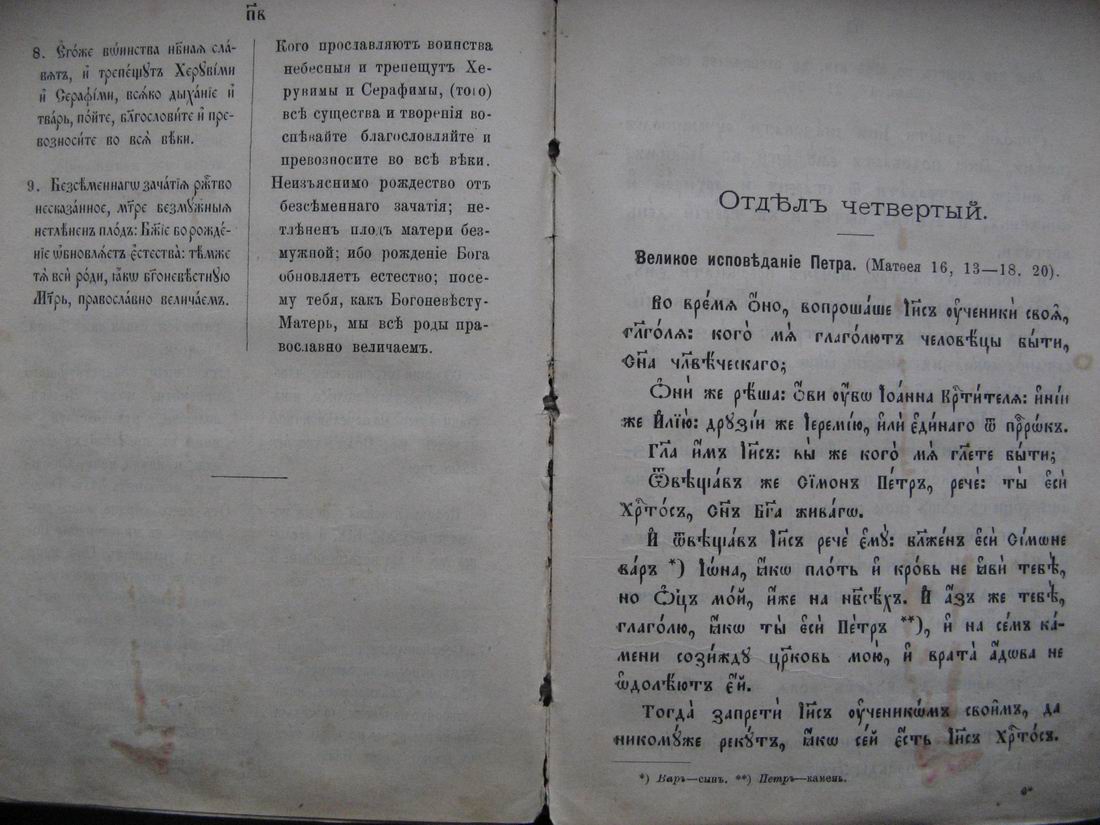 п҃в
8. Єго́же вѡ́инства нбⷭ҇наѧ сла́-
вѧтъ, и҆ трепе́щꙋтъ Херꙋві́ми
и҆ Серафі́ми, всѧ́ко дыха́нїе и҆
тва́рь, по́йте, блⷢ҇ослови́те и҆ пре-
возноси́те во всѧ̑ вѣ́ки.
9. Безсѣ́меннагѡ зача́тїѧ ржⷭ҇тво̀
несказа́нное, мт҃ре безмꙋ́жныѧ
нетлѣ́ненъ пло́дъ: Бж҃їе бо рожде́-
нїе ѡ҆бновлѧ́етъ є҆стества̀: тѣ́мже
тѧ̀ всѝ ро́ди, ꙗ҆́кѡ бг҃оневѣ́стнꙋю
Мт҃рь, правосла́вно велича́емъ.
Кого прославляютъ воинства
небесныя и трепещутъ Хе-
рувимы и Серафимы, (того)
всѣ существа и творенія во-
спѣвайте благословляйте и
превозносите во всѣ вѣки.
Неизъяснимо рождество отъ
безсѣменнаго зачатія; не-
тлѣненъ плодъ матери без-
мужной; ибо рожденіе Бога
обновляетъ естество; посе-
му тебя, какъ Богоневѣсту-
Матерь, мы всѣ роды пра-
вославно величаемъ.
Отдѣлъ четвертый.
Великое исповѣданіе Петра. (Матѳея 16, 13—18. 20).
Во вре́мѧ ѻ҆́но, вопроша́ше І҆и҃съ ᲂу҆ченикѝ своѧ̑,
гл҃го́лѧ: кого́ мѧ глаго́лютъ человѣ́цы бы́ти,
Сн҃а чл҃вѣ́ческаго;
Ѻ҆ни́ же рѣ́ша: ѻ҆́ви ᲂу҆́бѡ І҆ѡа́нна Крⷭ҇ти́телѧ: и҆ні́и
же И҆лїю̀: дрꙋзі́и же І҆еремі́ю, и҆лѝ є҆ди́наго ѿ прⷪ҇рѡ́къ.
Гл҃а и҆̀мъ І҆и҃съ: вы́ же кого́ мѧ гл҃ете бы́ти;
Ѿвѣща́въ же Сі́монъ Пе́тръ, речѐ: ты̀ є҆сѝ
Хрⷭ҇то́съ, Сн҃ъ Бг҃а жива́гѡ.
И҆ ѿвѣща́въ І҆и҃съ речѐ є҆мꙋ̀: бл҃же́нъ є҆сѝ Сі́мѡне
ва́ръ *) І҆ѡ́на, ꙗ҆́кѡ пло́ть и҆ кро́вь не ꙗ҆вѝ тебѣ̀,
но Ѻ҆ц҃ъ мо́й, и҆́же на нб҃сѣ́хъ. И҆ а҆́зъ же тебѣ̀,
глаго́лю, ꙗ҆́кѡ ты̀ є҆сѝ Пе́тръ **), и҆ на се́мъ ка́-
мени сози́ждꙋ цр҃ковь мою̀, и҆ врата̀ а҆́дѡва не
ѡ҆долѣ́ютъ є҆́й.
Тогда̀ запретѝ І҆и҃съ ᲂу҆ченикѡ́мъ свои̑мъ, да
никомꙋ́же рекꙋ́тъ, ꙗ҆́кѡ се́й є҆́сть І҆и҃съ Хрⷭ҇то́съ.
*) Варъ—сынъ. **) Петръ—камень.
6*